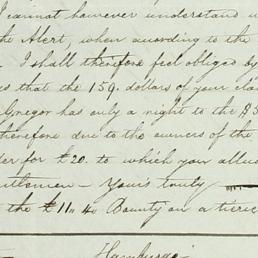 I cannot however understand w
the Alert, when according to the
. I shall therefore feel obliged by
es that the 159. dollars of your cla
Gregor has only a right to the $5
therefore due to the owners of the
der for £20. to which your allus
entlemen - Your's truly
the £11.4 Bounty on a tierce
Hamburg